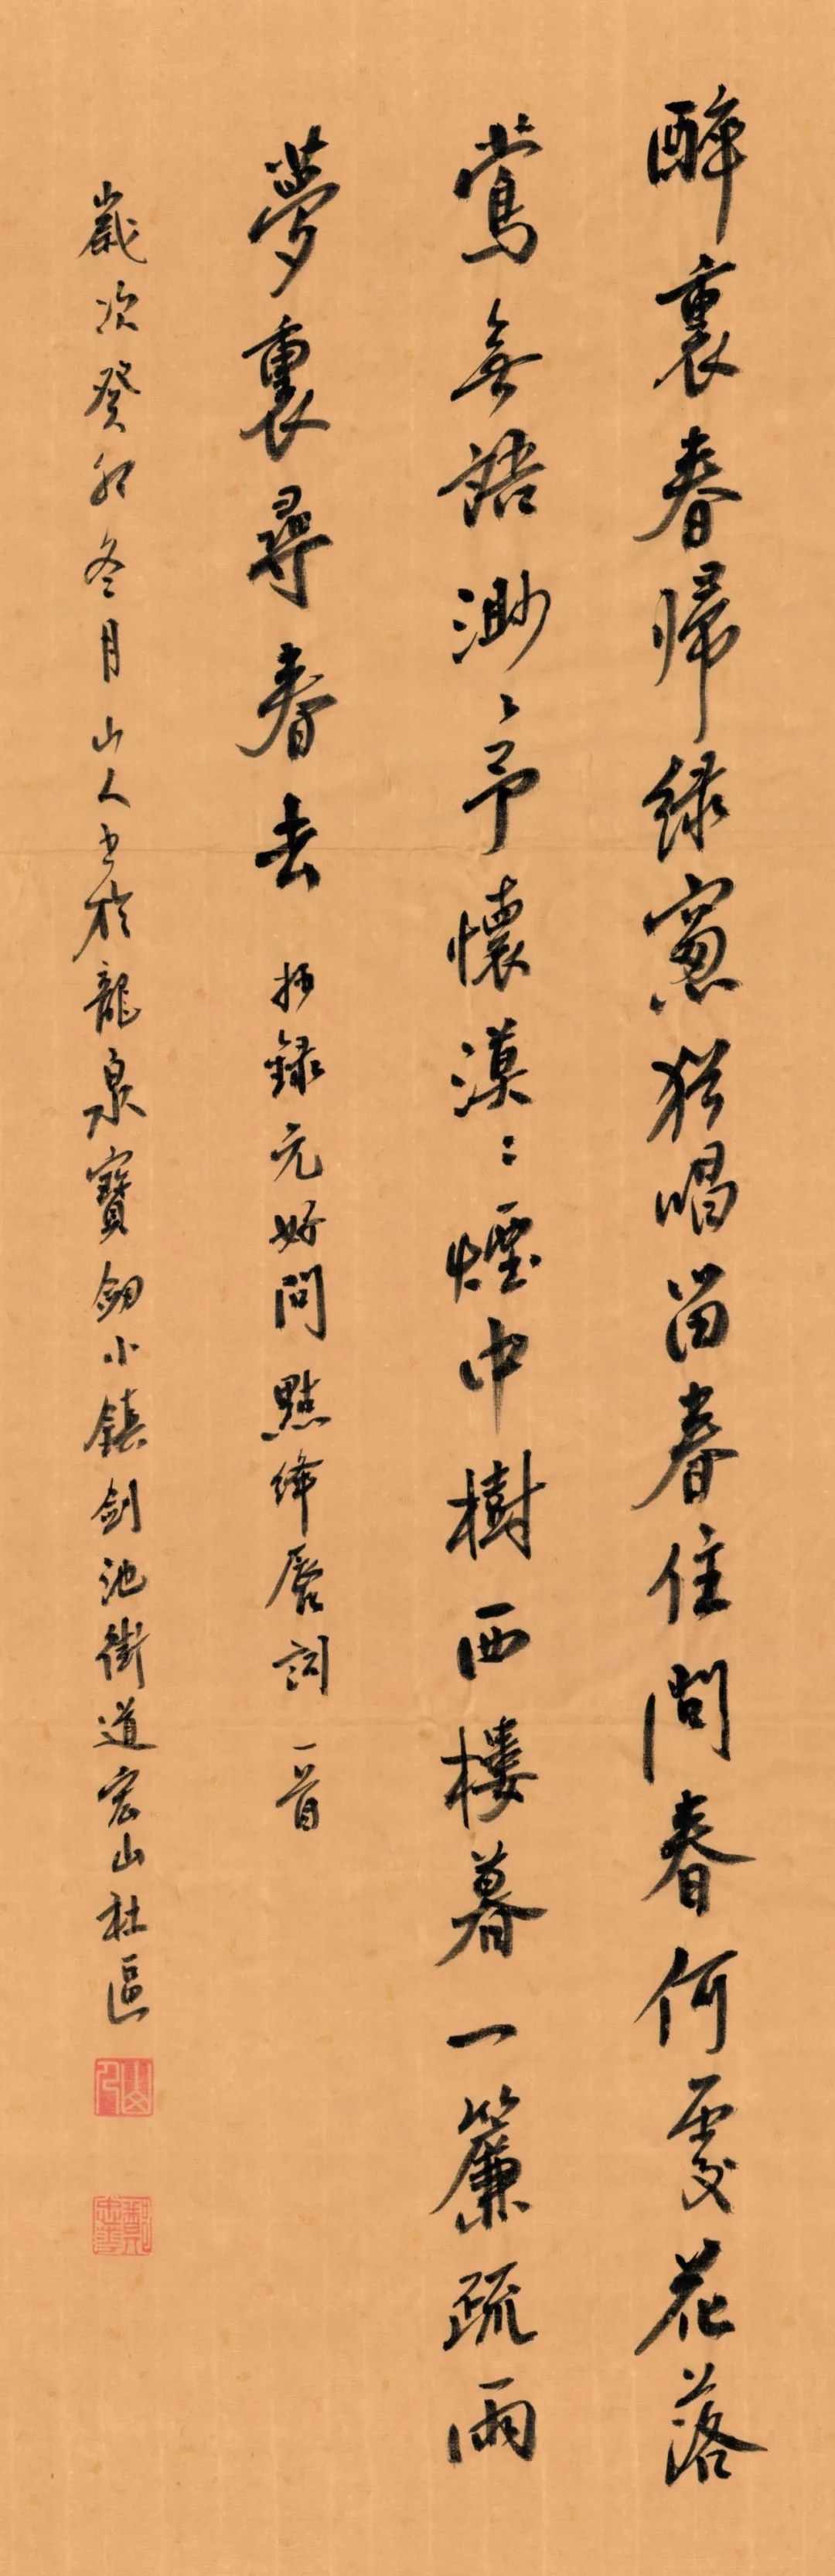 醉裏春歸綠窻猶唱留春住問春何處花落
鶯無語渺〻予懷漠〻煙中樹西樓暮一簾疏雨
夢裏尋春去
抄錄元好問點絳唇詞一首
歲次癸卯冬月山人書於龍泉寶劍小鎮劍池街道宏山社區
山人